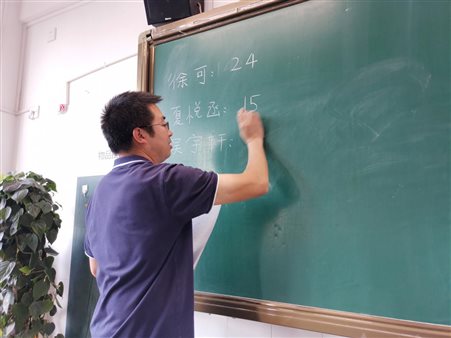 徐可: 24
夏悦丞: 15
吴宇轩: